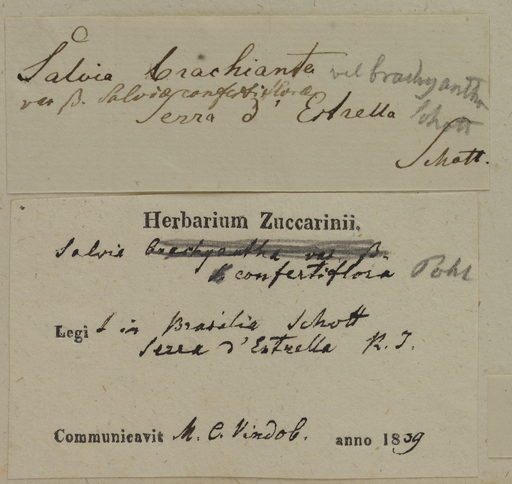 Salvia brachianta vel brachyantha
var β. Salviae confertiflorae Schott
Serra d'Estrella
Schott.
Herbarium Zuccarinii.
Salvia brachyantha var β.
confertiflora Pohl
Legit in Brasilia Schott
Serra d'Estrella R. J.
Communicavit M. C. Vindob. anno 1839